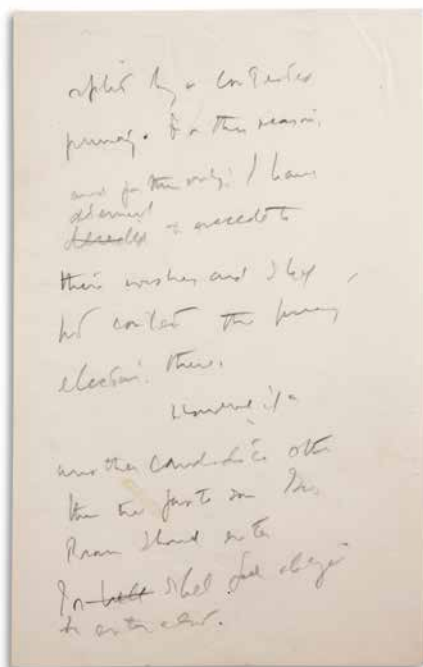 split by a contested
primary. For this reason,
and for this only: I have
determined
decided to accede to
their wishes and shall
not contest the primary
election there.
However, if a
another candidate other
than the favorite son Gov.
should enter
I shall feel obliged
to enter also.